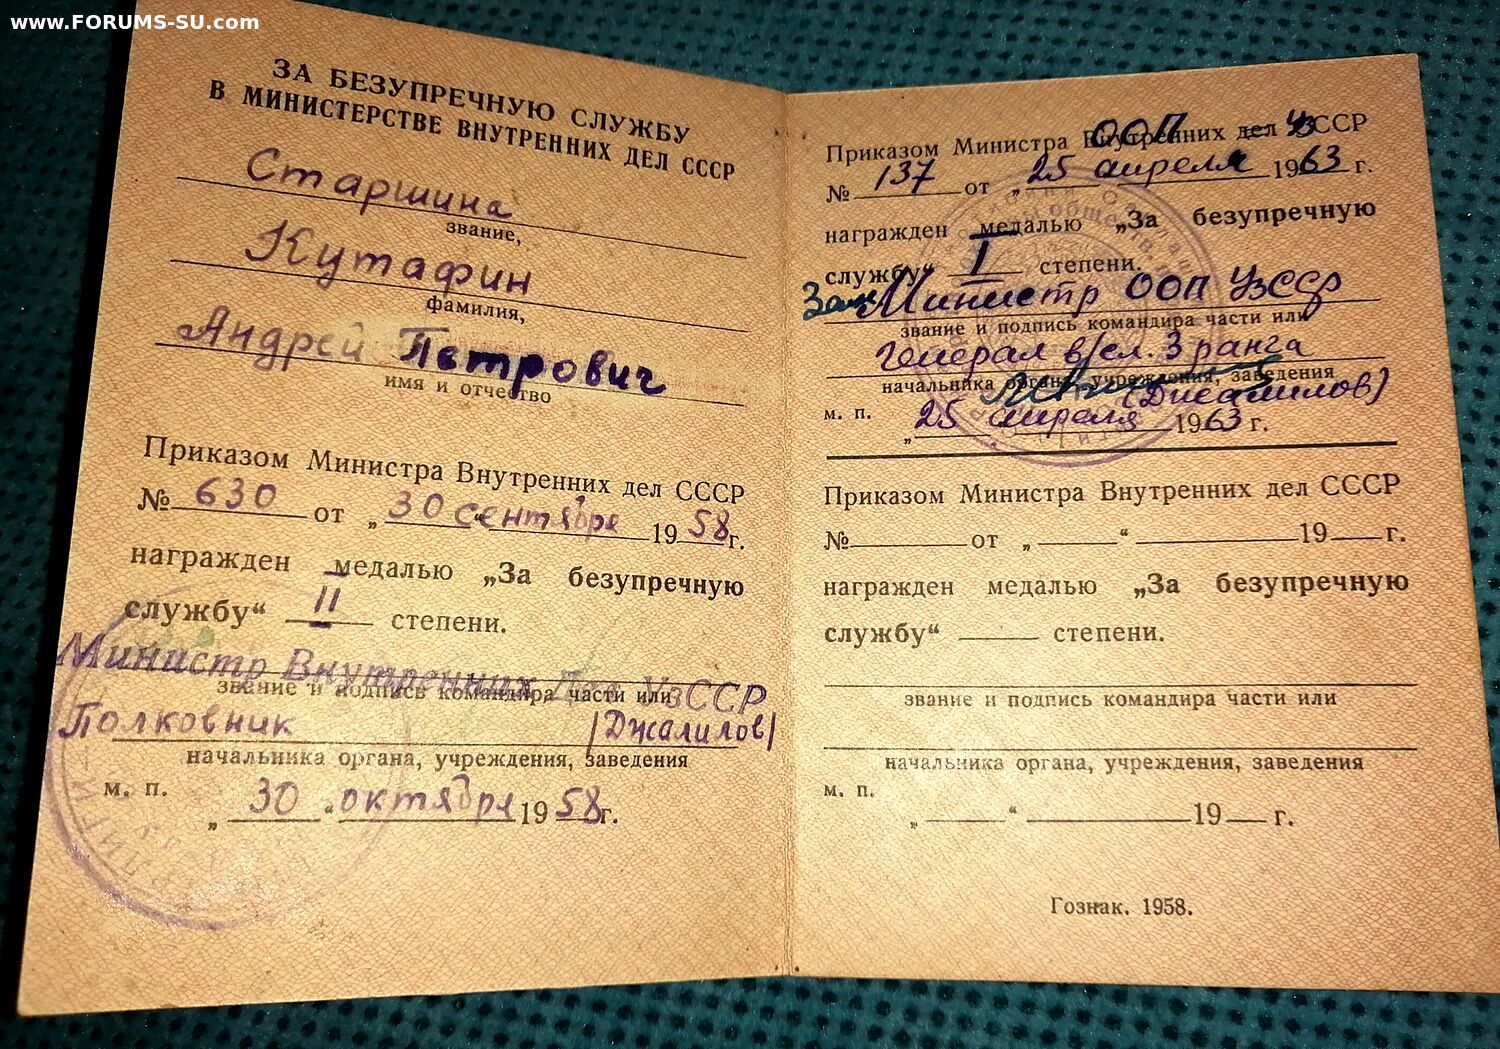 www.FORUMS-SU.com
ЗА БЕЗУПРЕЧНУЮ СЛУЖБУ
В МИНИСТЕРСТВЕ ВНУТРЕННИХ ДЕЛ СССР
Старшина
звание,
Кутафин
фамилия,
Андрей Петрович
имя и отчество
Приказом Министра Внутренних дел СССР
№ 630 от „ 30 сентября 1958 г.
награжден медалью „За безупречную
службу“ II степени.
Министр Внутренних Дел УзССР
звание и подпись командира части или
Полковник /Джалилов/
начальника органа, учреждения, заведения
м. п.
„ 30 “ октября 1958 г.
Приказом Министра Внутренних дел СССР
ООП Уз
№ 137 от „ 25 апреля 1963 г.
награжден медалью „За безупречную
службу“ I степени.
Зам Министр ООП УзССР
звание и подпись командира части или
генерал в/сл. 3 ранга
начальника органа, учреждения, заведения
(Джалилов)
м. п.
„ 25 апреля 1963 г.
Приказом Министра Внутренних дел СССР
№ от „ “ 19 г.
награжден медалью „За безупречную
службу“ степени.
звание и подпись командира части или
начальника органа, учреждения, заведения
м. п.
„ “ 19 г.
Гознак. 1958.